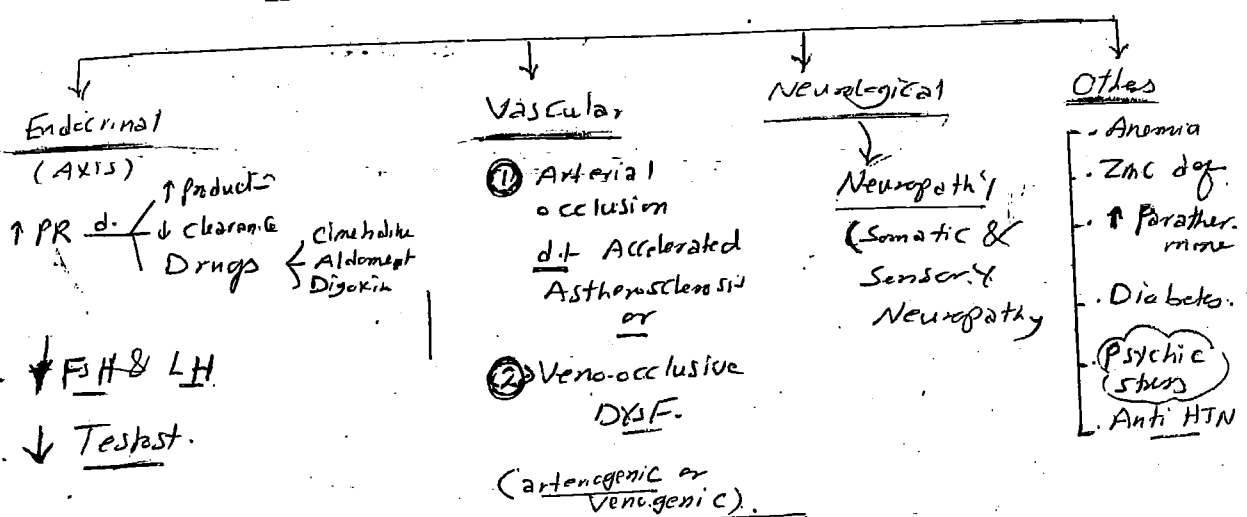 Endocrinal
(AXIS)
↑ PR d.t
↑ Product
↓ clearance
Drugs
Cimetidine
Aldomept
Digoxin
↓ FSH & LH
↓ Testost.
Vascular
① Arterial
occlusion
d.t Accelerated
Astherosclerosis
or
② Veno-occlusive
DYSF.
(arteriogenic or
Venogenic).
Neurological
Neuropathy
(Somatic &
Sensory
Neuropathy
Othes
- Anemia
- Zinc def.
- ↑ Parather-
mone
- Diabetes.
- Psychic
stress
- Anti HTN